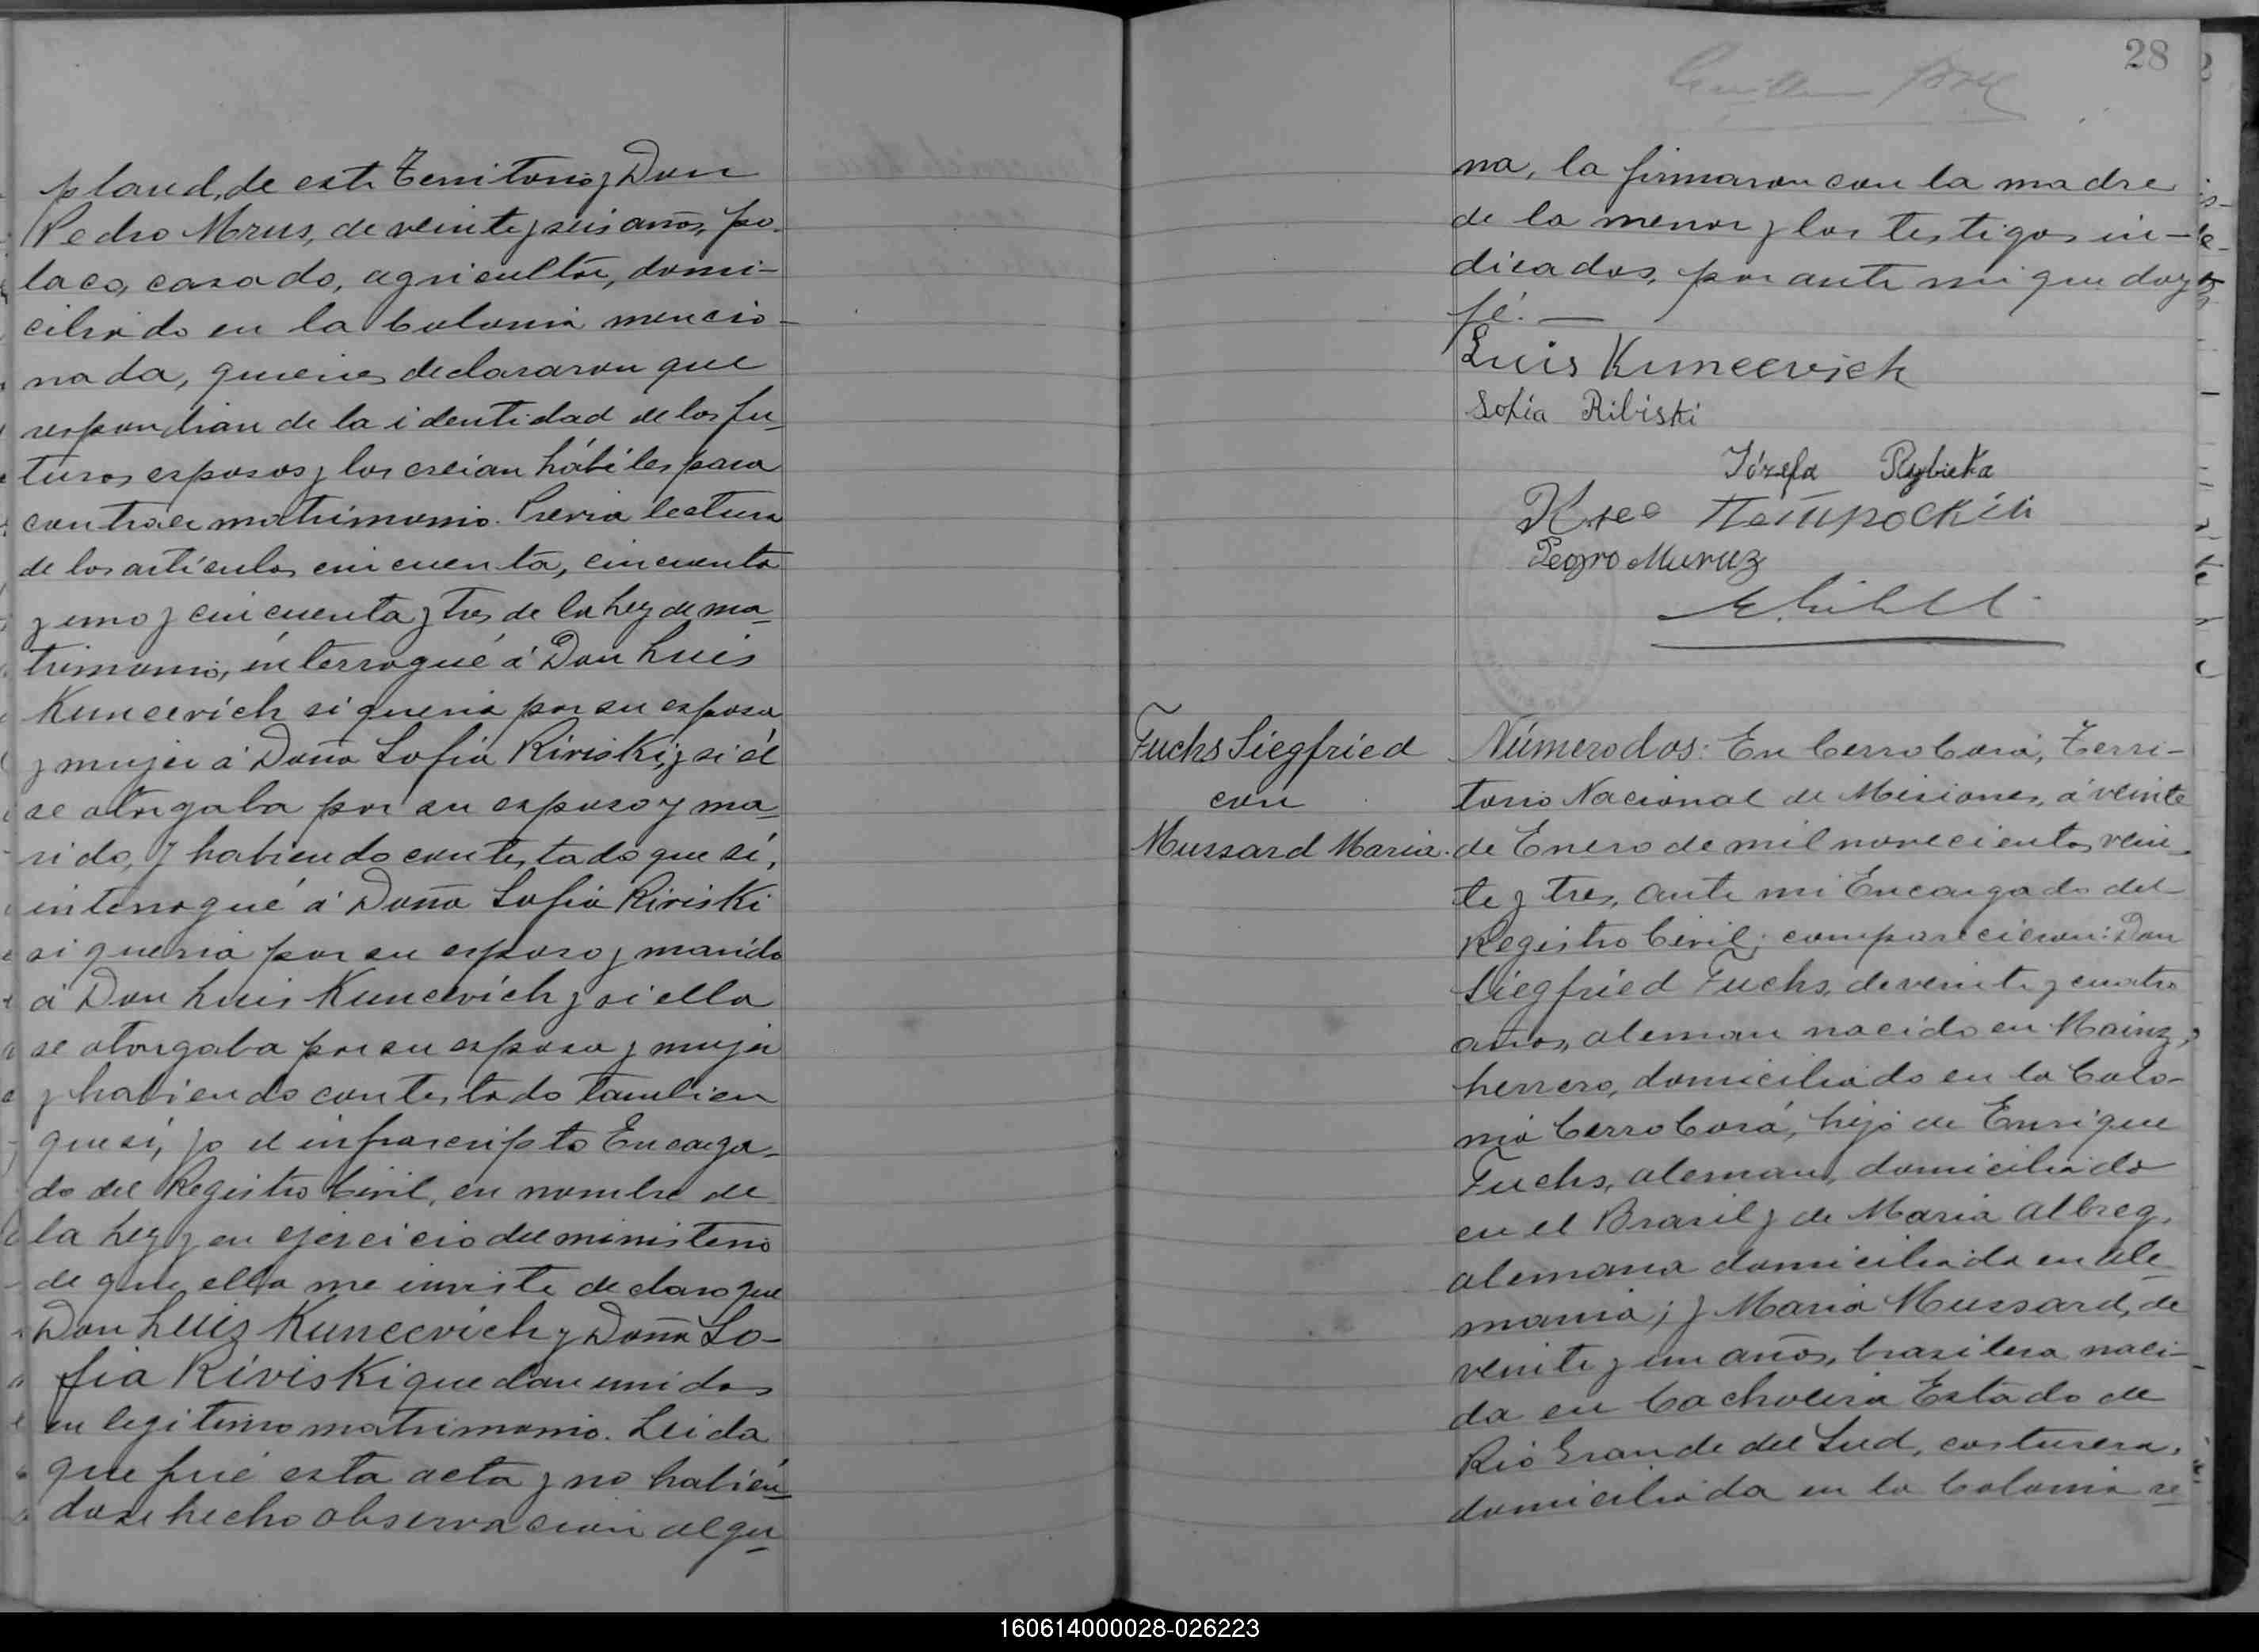 pland, de este Territorio y Don
Pedro Mrus, de veinte y seis años, po-
laco, casado, agricultor, domi-
ciliado en la Colonia mencio-
nada, quienes declararon que
respondian de la identidad de los fu-
turos esposos y los creian hábiles para
contraer matrimonio. Previa lectura
de los artículos cincuenta, cincuenta
y uno y cincuenta y tres de la Ley de ma-
trimonio, interrogué á Don Luis
Kuncevich si queria por su esposa
y mujer á Doña Sofia Riviski, y si él
se otorgaba por su esposo y ma-
rido, y habiendo contestado que sí,
interrogué á Doña Sofia Riviski
si queria por su esposo y marido
á Don Luis Kuncevich y si ella
se otorgaba por su esposa y mujer
y habiendo contestado tambien
que sí, yo el infrascripto Encarga-
do del Registro Civil, en nombre de
la Ley y en ejercicio del ministerio
de que ella me inviste declaro que
Don Luis Kuncevich y Doña So-
fia Riviski quedan unidos
en legitimo matrimonio. Leida
que fué esta acta y no habién-
dose hecho observacion algu-
28
na, la firmaron con la madre
de la menor y los testigos in-
dicados, por ante mi que doy
fé. —
Luis Kuncevich
Sofia Ribiski
Józefa Rybicka
Pegro Muruz
Fuchs Siegfried
con
Mussard Maria.
Número dos: En Cerro Corá, Terri-
torio Nacional de Misiones, á veinte
de Enero de mil novecientos vein-
te y tres, ante mi Encargado del
Registro Civil; comparecieron: Don
Siegfried Fuchs, de veinte y cuatro
años, aleman nacido en Mainz,
herrero, domiciliado en la Colo-
nia Cerro Corá, hijo de Enrique
Fuchs, aleman, domiciliado
en el Brasil y de Maria Albreg,
alemana domiciliada en Ale-
mania; y Maria Mussard, de
veinte y un años, brasilera naci-
da en Cachoeira Estado de
Rio Grande del Sud, costurera,
domiciliada en la Colonia re-
160614000028-026223